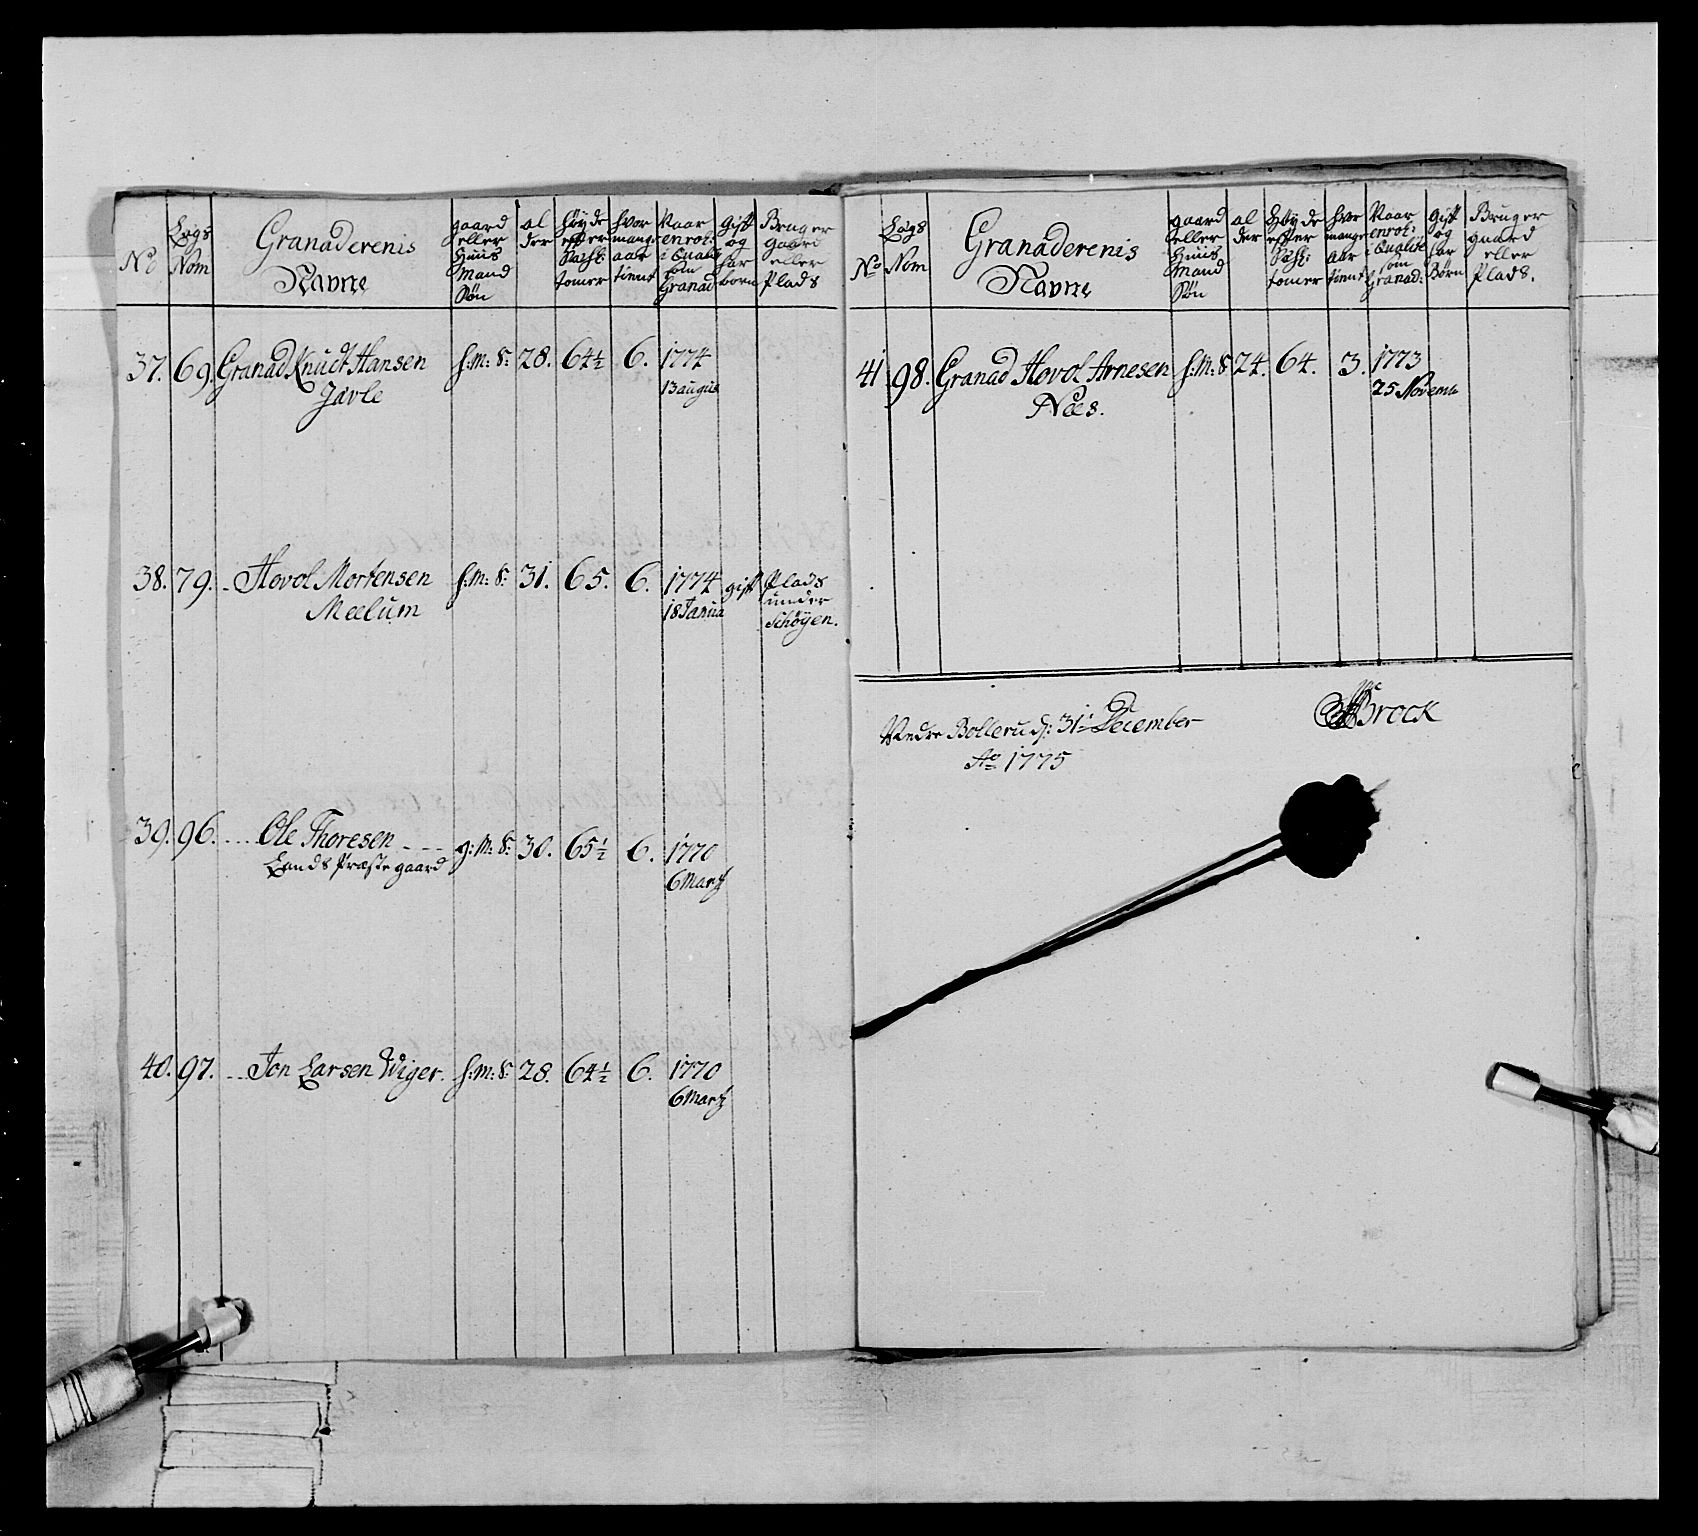 No
Lægs
Nom
Granaderenis
Navne
gaard
eller
Huus
Mand
Søn
al
der
Høyde
efter
Sachs:
tomer
hvor
mange
aar
tiennt
Naar
enrol:
i Qualit
som
Granad
Gift
og
har
born
Bruger
gaard
eller
Plads
37. 69. Granad Knudt Hansen h:m: S: 28. 64½ 6. 1774
Jävle 13 augus
38. 79. - Hovol Mortensen h:m: S: 31. 65. 6. 1774 gift Plads
Meelum 18 Janua under
Schöyen.
39. 96. .... Ole Thoresen - - - g: m: S: 30. 65½ 6. 1770
Lands Præste gaard 6 Marty
40. 97. ... Jon Larsen Wiger. h:m: S: 28. 64½ 6. 1770
6 Marty
No
Lægs
Nom
Granaderenis
Navne
gaard
eller
Huus
Mand
Søn
al
der
Høyde
efter
Sachs:
tomer
hvor
mange
aar
tiennt
Naar
enrol:
i Qualite
som
Granad:
Gift
og
har
Börn
Bruger
gaard
eller
Plads.
41 98. Granad Hovol Arnesen h:m: S 24. 64. 3. 1773
Næs. 25 Novemb
Nedre Bollerud d: 31te December
Ao 1775
Brock